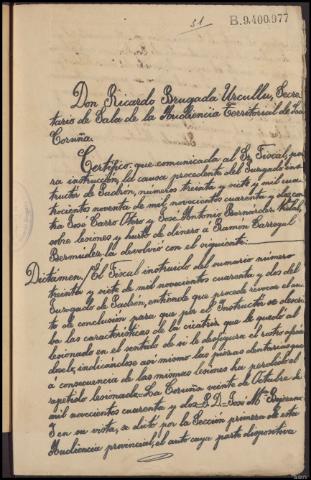 51
B.9.400.977
Don Ricardo Brugada Ureullu, Secre-
tario de Sala de la Audiencia Territorial de La
Coruña.
Certifico: que comunicada al Sr. Fiscal, pa-
ra instrucción, la causa procedente del Juzgado Ins-
tructor de Padrón, números treinta y siete y mil cua-
trocientos noventa de mil novecientos cuarenta y dos, con-
tra José Carro Otero y José Antonio Bermúdez
sobre lesiones y hurto de dinero a Ramón Carregal
Bermúdez, la devolvió con el siguiente:
Dictámen, El Fiscal instruido del sumario número
treinta y siete de mil novecientos cuarenta y dos del
Juzgado de Padrón, entiende que procede revocar el au-
to de conclusión para que por el Instructor se descri-
ba las características de la cicatriz que le quedó al
lesionado en el sentido de si le desfigura el rostro afean-
dosele, indicándose así mismo las piezas dentarias que
a consecuencia de las mismas lesiones ha perdido el
repetido lesionado. La Coruña veinte de Octubre de
mil novecientos cuarenta y dos P.D. José Mª
Y en su vista, se dictó por la Sección primera de esta
Audiencia provincial, el auto cuya parte dispositiva